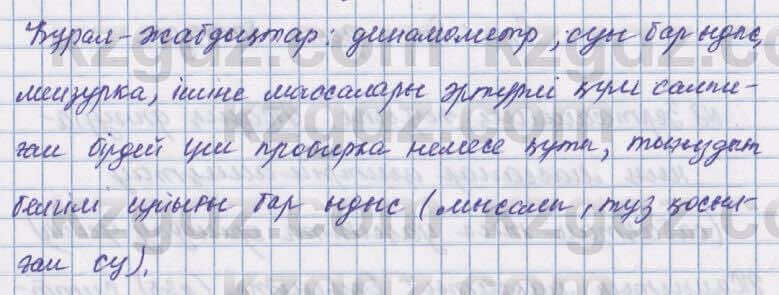 Құрал-жабдықтар: динамометр, суы бар ыдыс,
мензурка, ішіне массалары әртүрлі құм салын-
ған бірдей үш пробирка немесе құты, тығыздығы
белгілі сұйығы бар ыдыс (мысалы, тұз қосыл-
ған су).